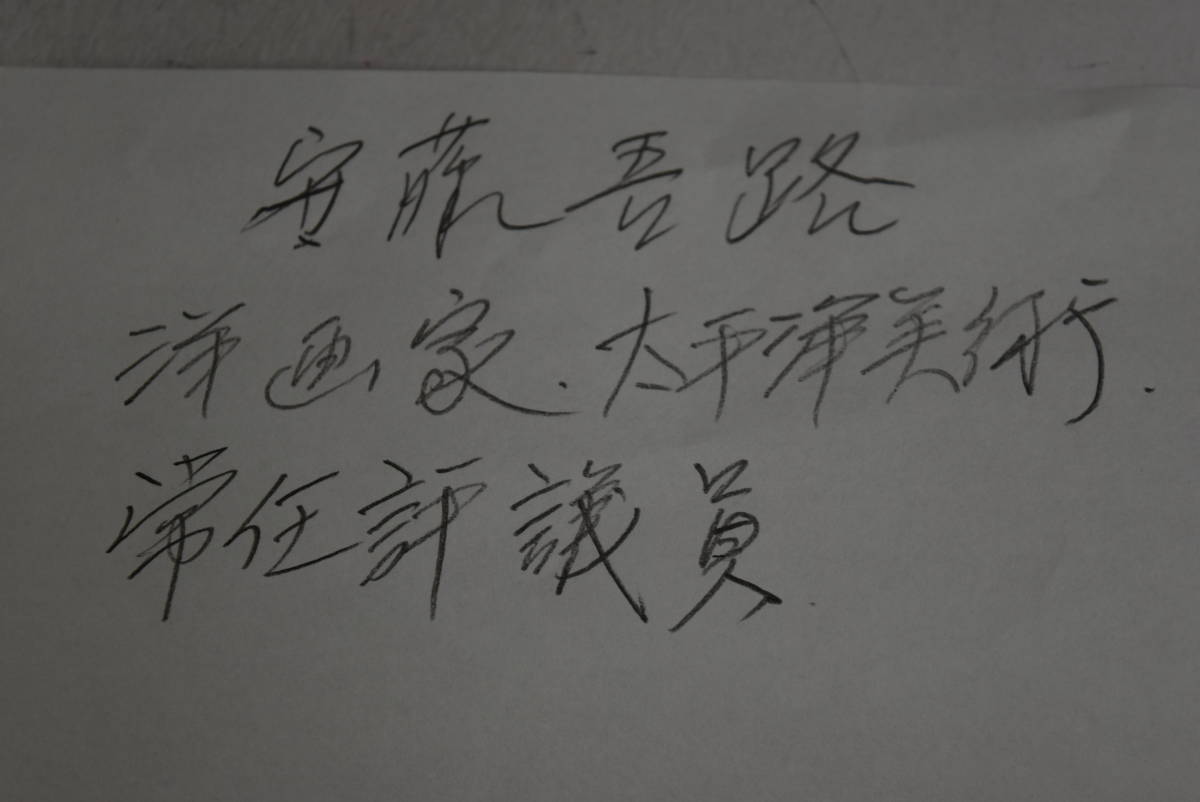 安藤吾路
洋画家.太平洋美術.
常任評議員